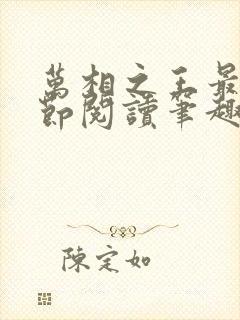 萬相之王最
節閱讀筆趣
陳定如